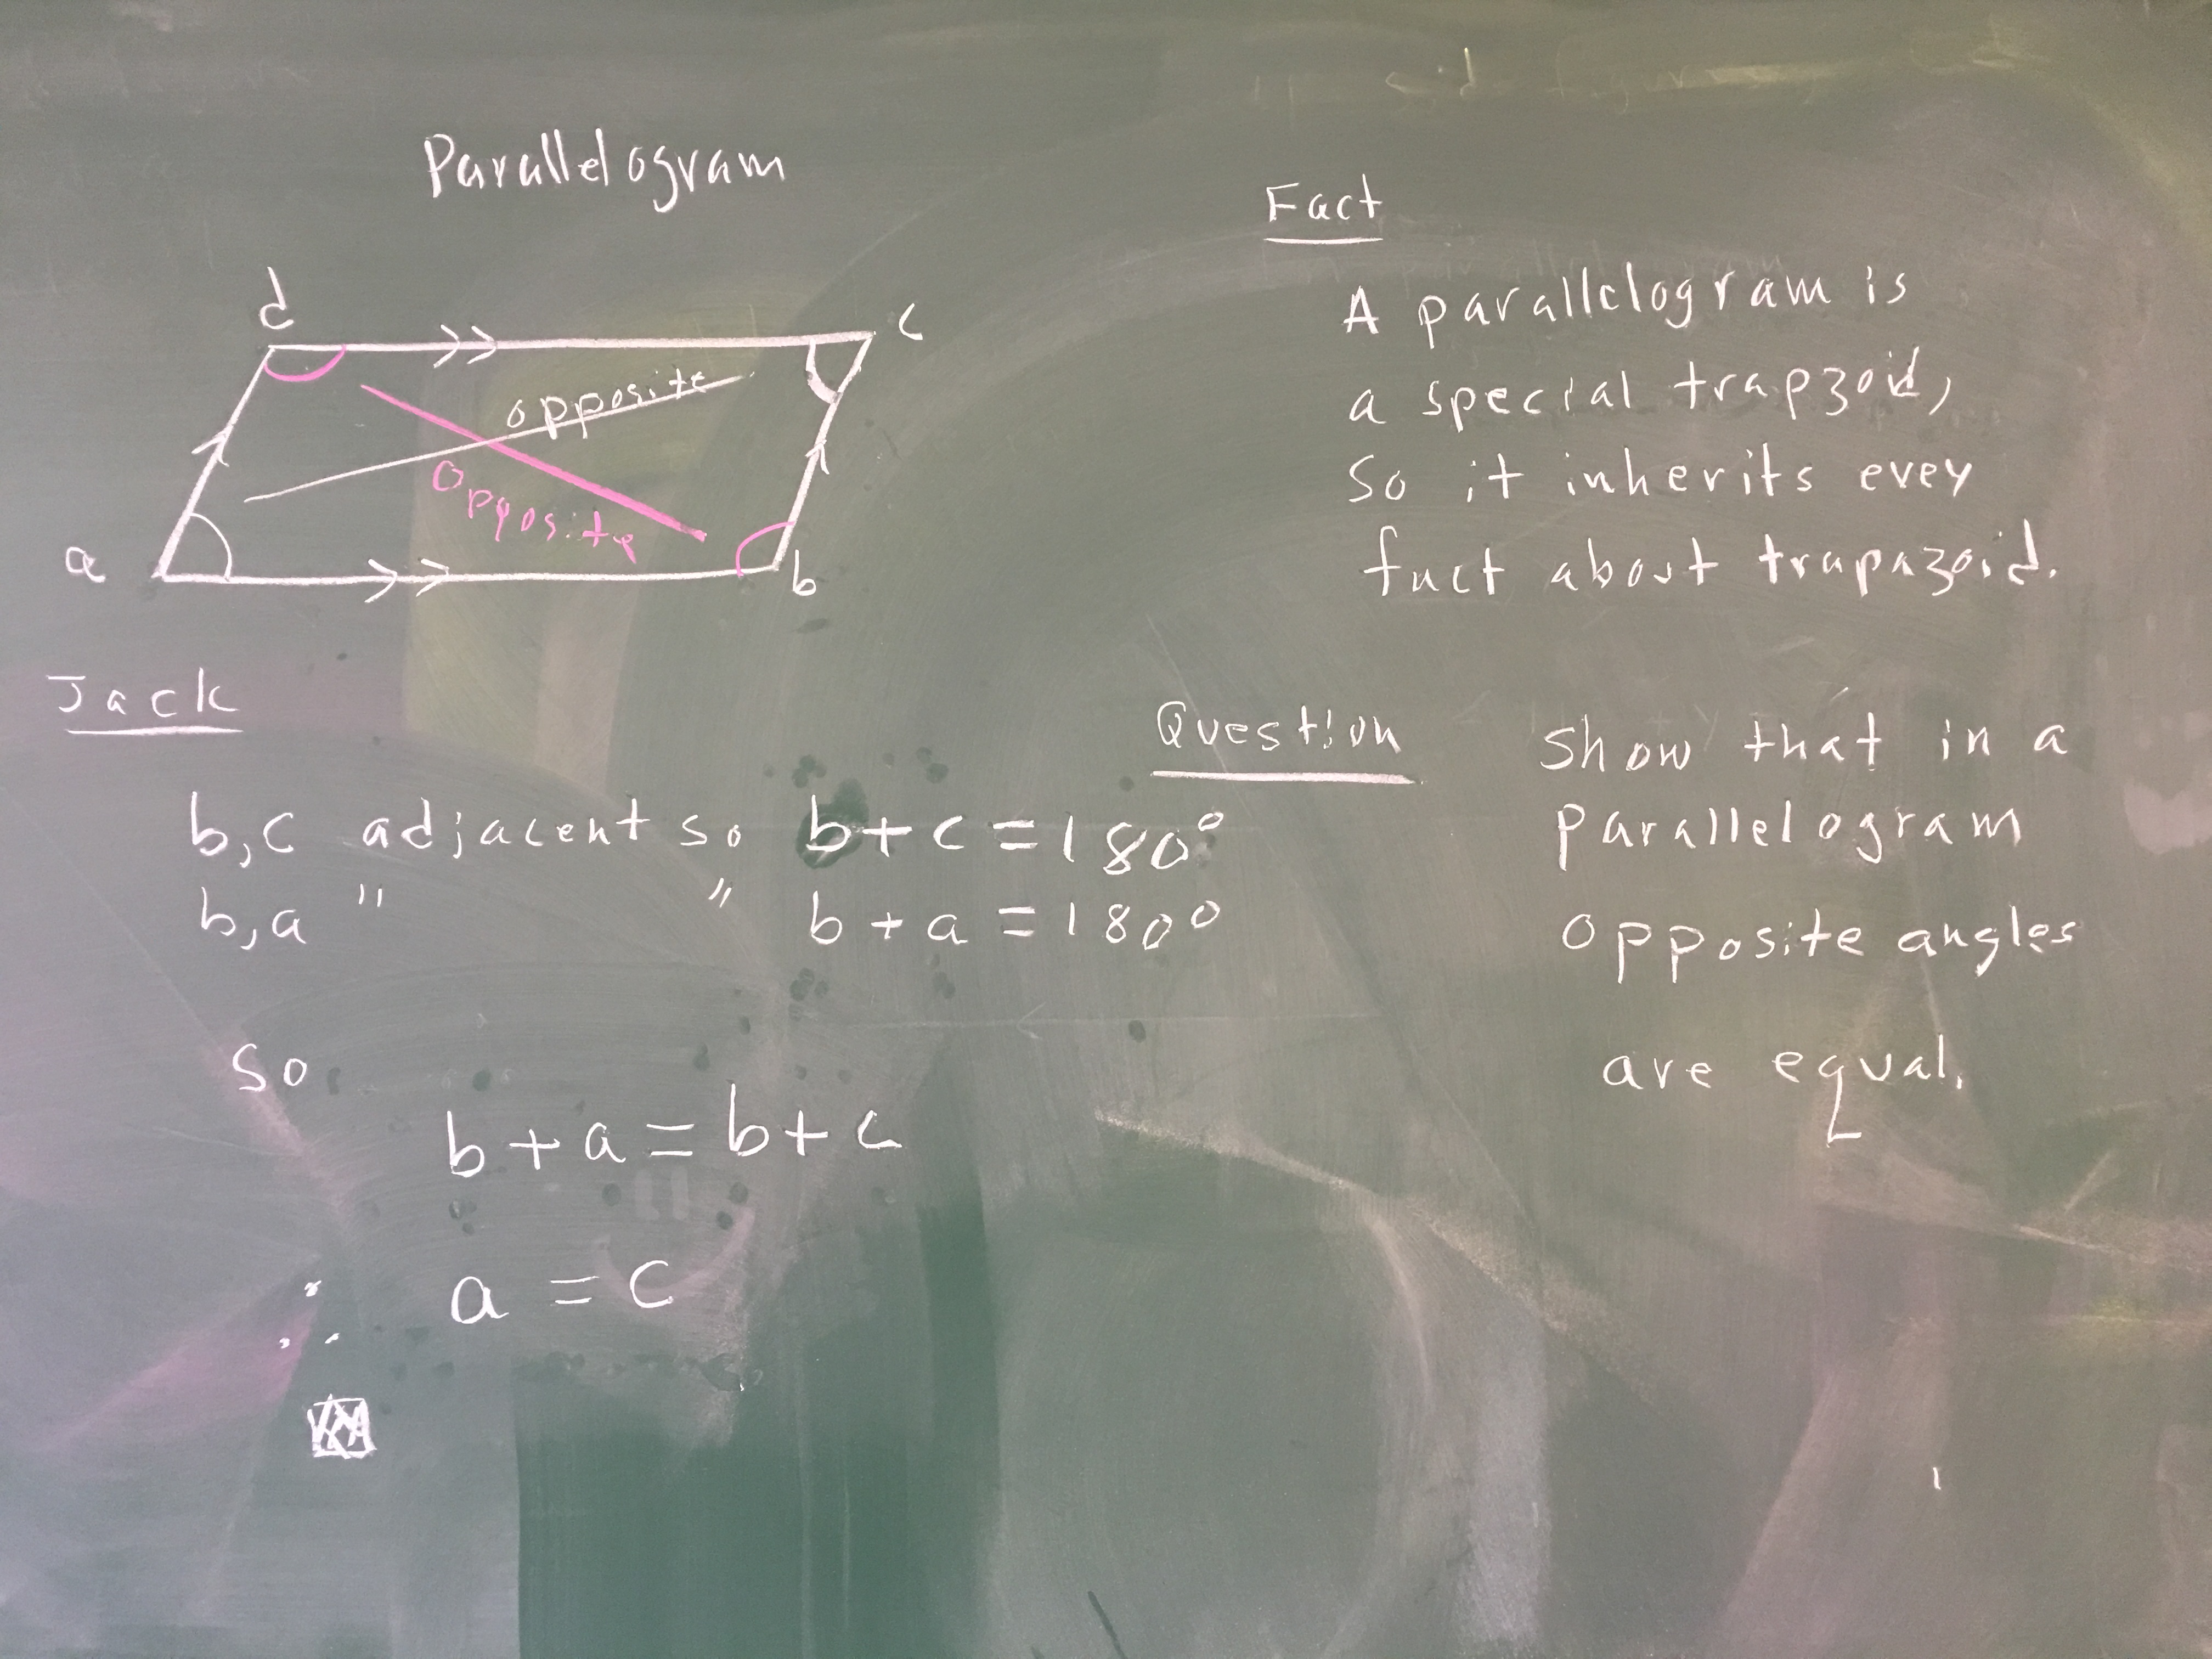 Parallelogram
d
c
opposite
opposite
a
b
Fact
A parallelogram is
a special trapzoid,
so it inherits evey
fact about trapazoid.
Jack
b,c adjacent so b+c=180°
b,a " " b+a=180°
so
b+a=b+c
∴ a=c
Question
Show that in a
parallelogram
opposite angles
are equal.